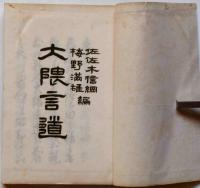 佐佐木信綱
梅野満雄編
大隈言道